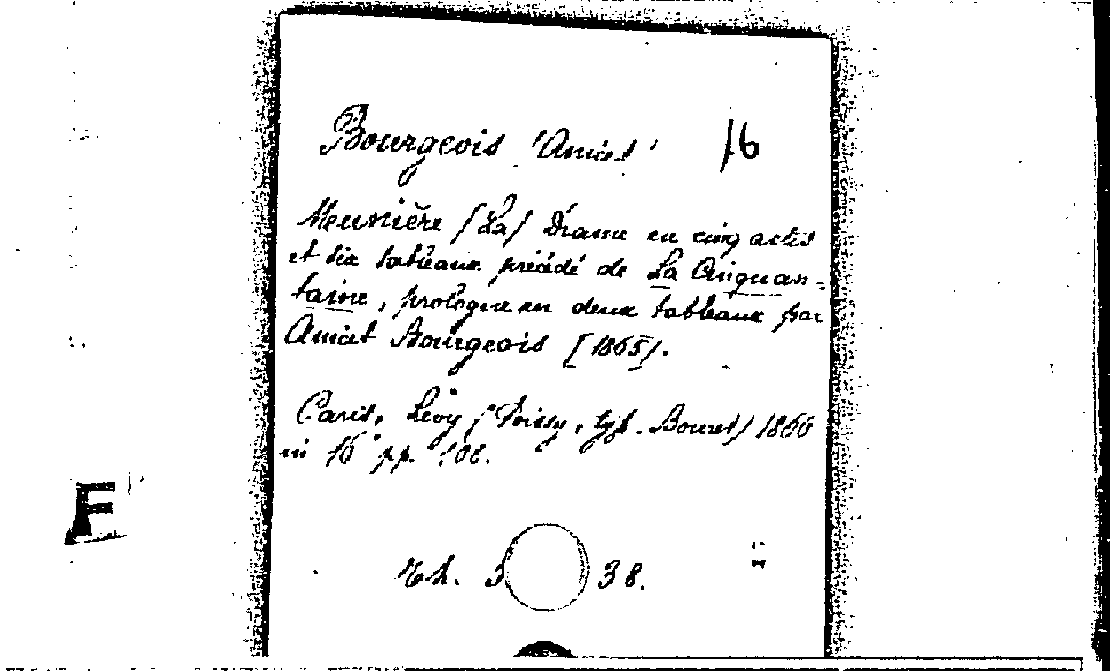 Bourgeois (Anicet) 16
Meunière (La) Drame en cinq actes
et six tableaux précédé de La Cinquan-
taine, prologue en deux tableaux par
Anicet Bourgeois [1865].
Paris, Lévy (Poissy, typ. Bouret) 1866
in 16° pp. 108.
Th. 38.
F